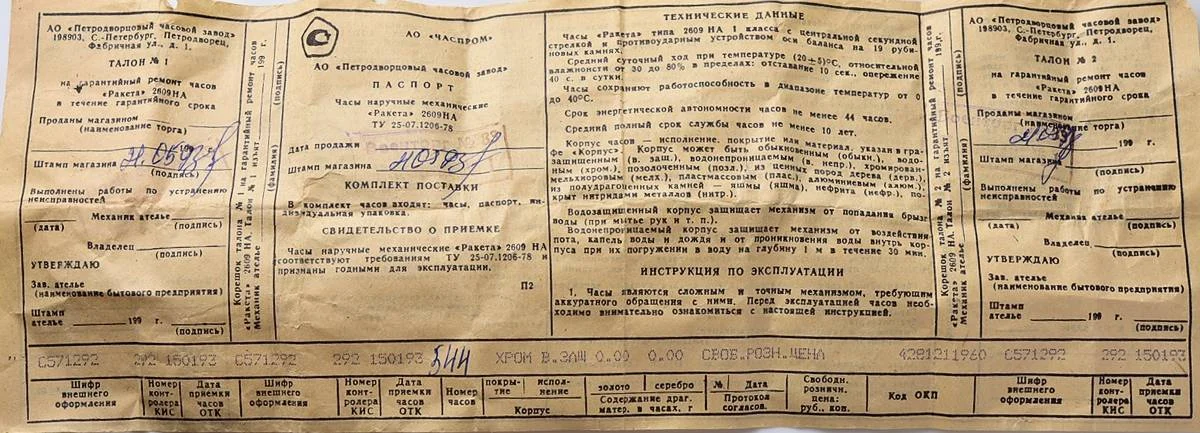 АО «Петродворцовый часовой завод»
198903, С.-Петербург, Петродворец,
Фабричная ул., д. 1.
ТАЛОН № 1
на гарантийный ремонт часов
«Ракета» 2609НА
в течение гарантийного срока
Проданы магазином
(наименование торга)
Штамп магазина
(подпись)
Выполнены работы по устранению
неисправностей
Механик ателье
(дата) (подпись)
Владелец
(подпись)
УТВЕРЖДАЮ
Зав. ателье
(наименование бытового предприятия)
Штамп
ателье 199 г.
(подпись)
Корешок талона № 1 на гарантийный ремонт часов
«Ракета» 2609 НА. Талон № 1 изъят 199 г.
Механик ателье
(фамилия) (подпись)
АО «ЧАСПРОМ»
АО «Петродворцовый часовой завод»
ПАСПОРТ
Часы наручные механические
«Ракета» 2609НА
ТУ 25-07.1206-78
Дата продажи
Штамп магазина
КОМПЛЕКТ ПОСТАВКИ
В комплект часов входят: часы, паспорт, ин-
дивидуальная упаковка.
СВИДЕТЕЛЬСТВО О ПРИЕМКЕ
Часы наручные механические «Ракета» 2609 НА
соответствуют требованиям ТУ 25-07.1206-78 и
признаны годными для эксплуатации.
П2
ТЕХНИЧЕСКИЕ ДАННЫЕ
Часы «Ракета» типа 2609 НА 1 класса с центральной секундной
стрелкой и противоударным устройством оси баланса на 19 руби-
новых камнях.
Средний суточный ход при температуре (20±5)°С, относительной
влажности от 30 до 80% в пределах: отставание 10 сек., опережение
40 с. в сутки.
Часы сохраняют работоспособность в диапазоне температур от 0
до 40°С.
Срок энергетической автономности часов не менее 44 часов.
Средний полный срок службы часов не менее 10 лет.
Корпус часов — исполнение, покрытие или материал, указан в гра-
фе «Корпус». Корпус может быть обыкновенным (обыкн.), водо-
защищенным (в. защ.), водонепроницаемым (в. непр.), хромирован-
ным (хром.), позолоченным (позл.), из ценных пород дерева (дерв.),
мельхиоровым (мелх.), пластмассовым (плас.), алюминиевым (алюм.),
из полудрагоценных камней — яшмы (яшма), нефрита (нефр.), по-
крыт нитридами металлов (нитр.).
Водозащищенный корпус защищает механизм от попадания брызг
воды (при мытье рук и т. п.).
Водонепроницаемый корпус защищает механизм от воздействия
пота, капель воды и дождя и от проникновения воды внутрь кор-
пуса при их погружении в воду на глубину 1 м в течение 30 мин.
ИНСТРУКЦИЯ ПО ЭКСПЛУАТАЦИИ
1. Часы являются сложным и точным механизмом, требующим
аккуратного обращения с ними. Перед эксплуатацией часов необ-
ходимо внимательно ознакомиться с настоящей инструкцией.
Корешок талона № 2 на гарантийный ремонт часов
«Ракета» 2609 НА. Талон № 2 изъят 199 г.
Механик ателье
(фамилия) (подпись)
АО «Петродворцовый часовой завод»
198903, С.-Петербург, Петродворец,
Фабричная ул., д. 1.
ТАЛОН № 2
на гарантийный ремонт часов
«Ракета» 2609НА
в течение гарантийного срока
Проданы магазином 199 г.
(наименование торга)
Штамп магазина
(подпись)
Выполнены работы по устранению
неисправностей
Механик ателье
(дата) (подпись)
Владелец
(подпись)
УТВЕРЖДАЮ
Зав. ателье
(наименование бытового предприятия)
Штамп
ателье 199 г.
(подпись)
С571292 292 150193 С571292 292 150193 544 ХРОМ В.ЗАЩ 0.00 0.00 СВОБ.РОЗН.ЦЕНА 4281211960 С571292 292 150193
Шифр внешнего оформления
Номер контролера КИС
Дата приемки часов ОТК
Шифр внешнего оформления
Номер контролера КИС
Дата приемки часов ОТК
Номер часов
покрытие исполнение
Корпус
золото серебро
Содержание драг. матер. в часах, г
№ Дата
Протокол согласов.
Свободн. розничн. цена: руб., коп.
Код ОКП
Шифр внешнего оформления
Номер контролера КИС
Дата приемки часов ОТК